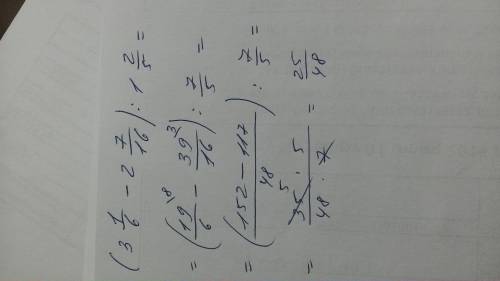 (3 1/6 − 2 7/16) : 1 2/5 =
= (19/6 ⁸ − 39/16 ³) : 7/5 =
= ((152 − 117)/48) : 7/5 =
= (35 ⁵ · 5)/(48 · 7) = 25/48